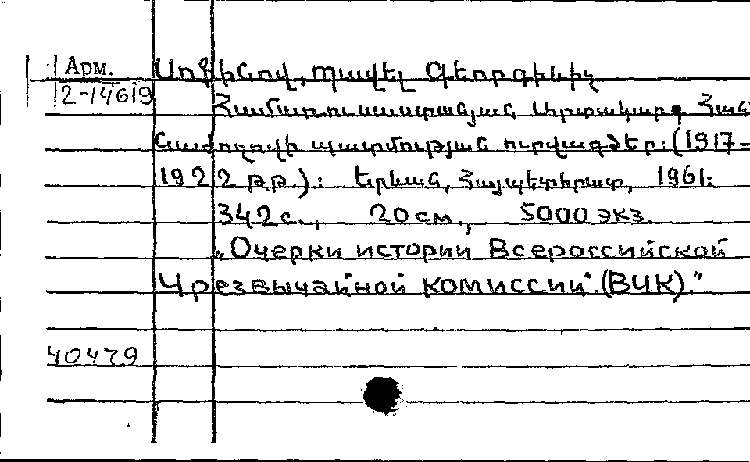 Арм. Սոֆինով, Պավել Գեորգիևիչ
2-14619 Համառուսաստանյան Արտակարգ Հան
ձնաժողովի պատմության ուրվագծեր: (1917-
1922 թթ.): Երևան, Հայպետհրատ, 1961:
342с., 20см., 5000 экз.
„Очерки истории Всероссийской
Чрезвычайной комиссии". (ВЧК)."
40479